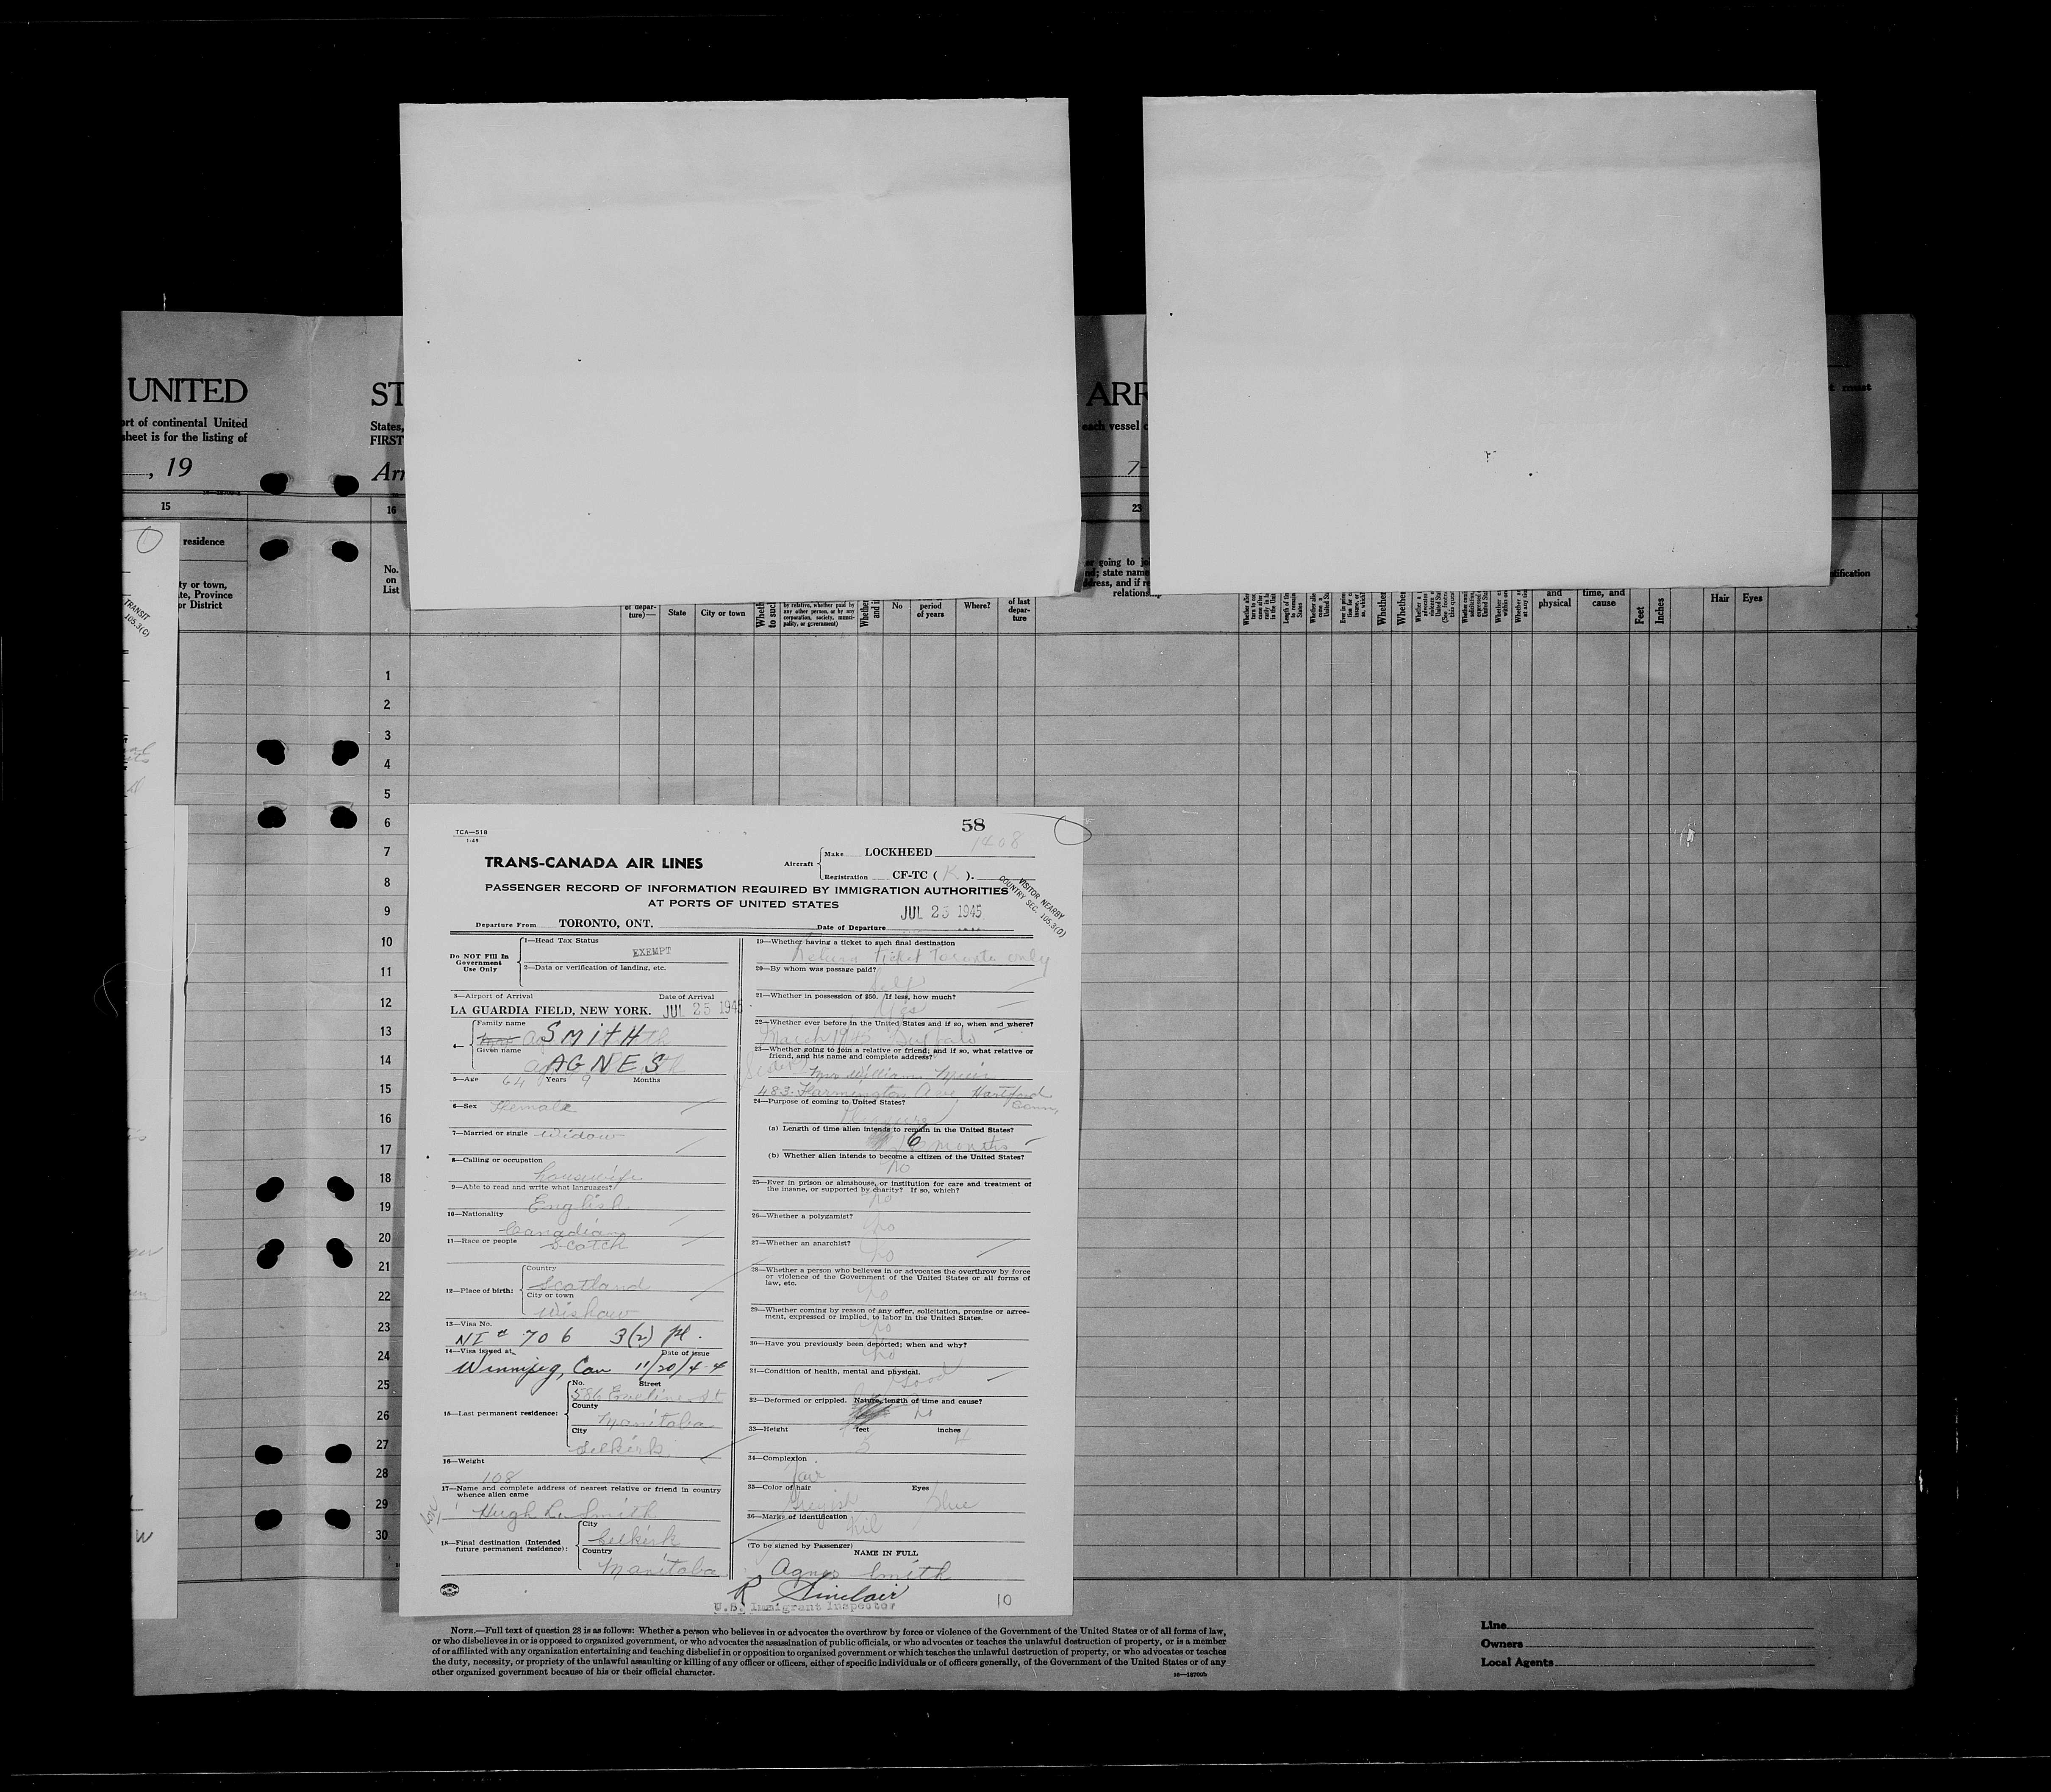 UNITED
ort of continental United
sheet is for the listing of
, 19
15
residence
ty or town,
te, Province
or District
TRANSIT
105.3(C)
ST
States,
FIRST
Arr
16
No.
on
List
ARR
each vessel c
7-
23
er going to jo
nd; state name
dress, and if re
relationsh
t must
tification
of depar-
ture)—
State
City or town
Wheth
to such
by relative, whether paid by
any other person, or by any
corporation, society, munici-
pality, or government)
Whether
and i
No
period
of years
Where?
of last
depar-
ture
Whether
Whether
and
physical
time, and
cause
Feet
Inches
Hair
Eyes
1
2
3
4
5
6
7
8
9
10
11
12
13
14
15
16
17
18
19
20
21
22
23
24
25
26
27
28
29
30
TCA—518
1-45
58
1408
TRANS-CANADA AIR LINES
Aircraft
Make LOCKHEED
Registration CF-TC ( K ).
PASSENGER RECORD OF INFORMATION REQUIRED BY IMMIGRATION AUTHORITIES
AT PORTS OF UNITED STATES
VISITOR NEARBY
COUNTRY SEC. 105.3(D)
JUL 25 1945
Departure From TORONTO, ONT.
Date of Departure
Do NOT Fill In
Government
Use Only
1—Head Tax Status
EXEMPT
2—Data or verification of landing, etc.
3—Airport of Arrival Date of Arrival
LA GUARDIA FIELD, NEW YORK. JUL 25 1945
4—
Family name
SMITH
Given name
AGNES
5—Age 64 Years 9 Months
6—Sex Female
7—Married or single Widow
8—Calling or occupation
housewife
9—Able to read and write what languages?
English
10—Nationality
Canadian
11—Race or people Scotch
12—Place of birth:
Country
Scotland
City or town
Wishaw
13—Visa No.
NI # 706 3(2) pl.
14—Visa issued at Date of issue
Winnipeg, Can 11/20/44
15—Last permanent residence:
No. Street
586 Eveline St
County
Manitoba
City
Selkirk
16—Weight
108
17—Name and complete address of nearest relative or friend in country
whence alien came
Hugh L. Smith
18—Final destination (Intended
future permanent residence):
City
Selkirk
Country
Manitoba
19—Whether having a ticket to such final destination
Return Ticket Toronto only
20—By whom was passage paid?
Self
21—Whether in possession of $50. If less, how much?
Yes
22—Whether ever before in the United States and if so, when and where?
March 1945 Buffalo
23—Whether going to join a relative or friend; and if so, what relative or
friend, and his name and complete address?
Sister Mrs William Muir
483 Farmington Ave Hartford
Conn,
24—Purpose of coming to United States?
(a) Length of time alien intends to remain in the United States?
6 months
(b) Whether alien intends to become a citizen of the United States?
No
25—Ever in prison or almshouse, or institution for care and treatment of
the insane, or supported by charity? If so, which?
no
26—Whether a polygamist?
no
27—Whether an anarchist?
no
28—Whether a person who believes in or advocates the overthrow by force
or violence of the Government of the United States or all forms of
law, etc.
no
29—Whether coming by reason of any offer, solicitation, promise or agree-
ment, expressed or implied, to labor in the United States.
no
30—Have you previously been deported; when and why?
no
31—Condition of health, mental and physical.
Good
32—Deformed or crippled. Nature, length of time and cause?
no
33—Height feet inches
5 4
34—Complexion
fair
35—Color of hair Eyes
Greyish Blue
36—Marks of identification
nil
(To be signed by Passenger)
NAME IN FULL
Agnes Smith
R Sinclair
U.S. Immigrant Inspector
10
NOTE.—Full text of question 28 is as follows: Whether a person who believes in or advocates the overthrow by force or violence of the Government of the United States or of all forms of law,
or who disbelieves in or is opposed to organized government, or who advocates the assassination of public officials, or who advocates or teaches the unlawful destruction of property, or is a member
of or affiliated with any organization entertaining and teaching disbelief in or opposition to organized government or which teaches the unlawful destruction of property, or who advocates or teaches
the duty, necessity, or propriety of the unlawful assaulting or killing of any officer or officers, either of specific individuals or of officers generally, of the Government of the United States or of any
other organized government because of his or their official character.
16—18700b
Line
Owners
Local Agents